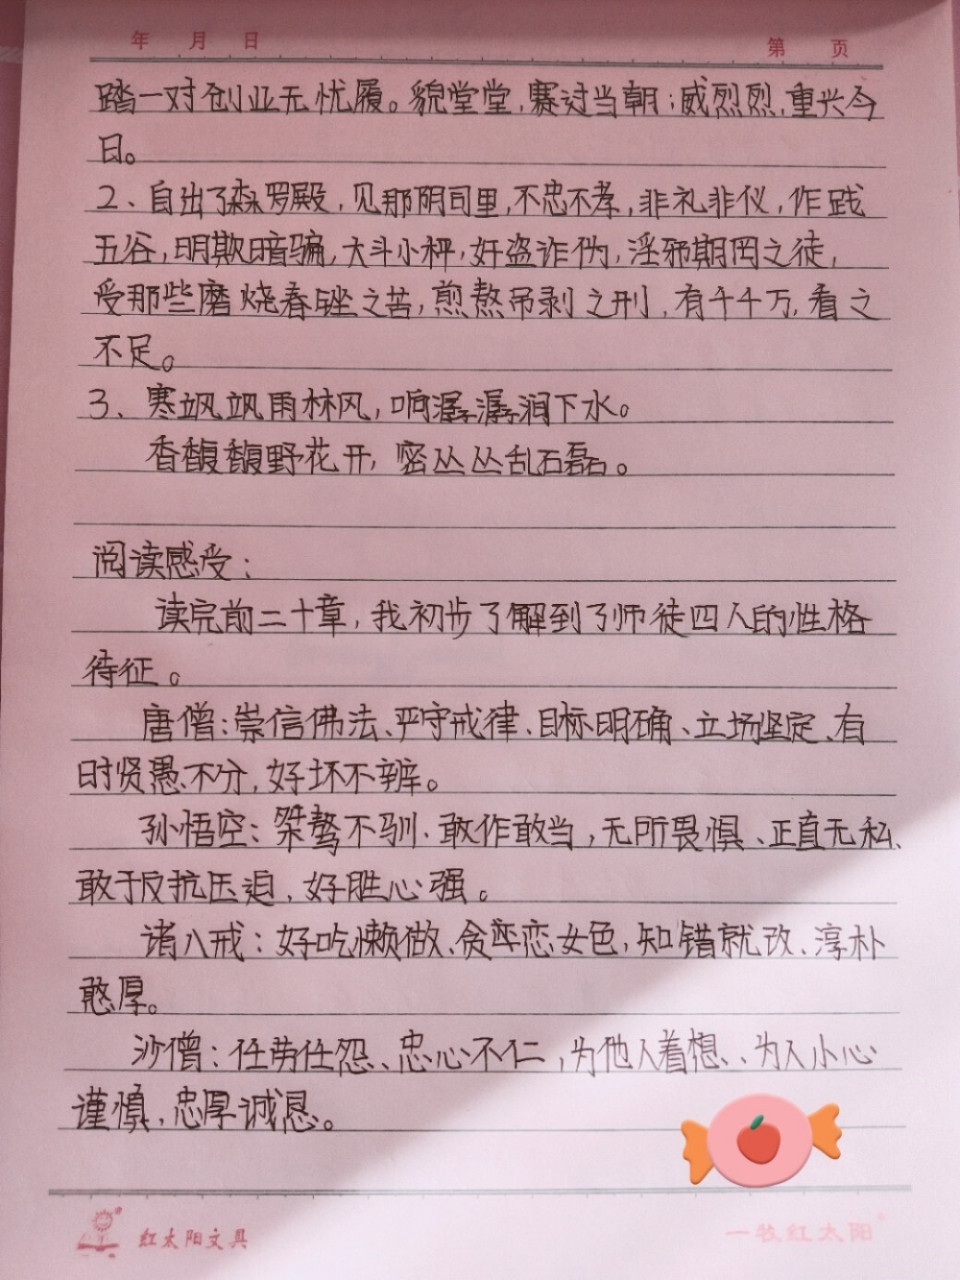 年 月 日 第 页
踏一对创业无忧履。貌堂堂,赛过当朝;威烈烈,重兴今
日。
2、自出了森罗殿,见那阴司里,不忠不孝,非礼非仪,作践
五谷,明欺暗骗,大斗小秤,奸盗诈伪,淫邪期罔之徒,
受那些磨烧舂锉之苦,煎熬吊剥之刑,有千千万,看之
不足。
3、寒飒飒雨林风,响潺潺涧下水。
香馥馥野花开,密丛丛乱石磊。
阅读感受:
读完前二十章,我初步了解到了师徒四人的性格
待征。
唐僧:崇信佛法、严守戒律、目标明确、立场坚定、有
时贤愚不分,好坏不辨。
孙悟空:桀骜不驯、敢作敢当,无所畏惧、正直无私、
敢于反抗压迫、好胜心强。
诸八戒:好吃懒做、贪恋女色,知错就改、淳朴
憨厚。
沙僧:任劳任怨、忠心不仁,为他人着想、为人小心
谨慎,忠厚诚恳。
红太阳文具 一牧红太阳